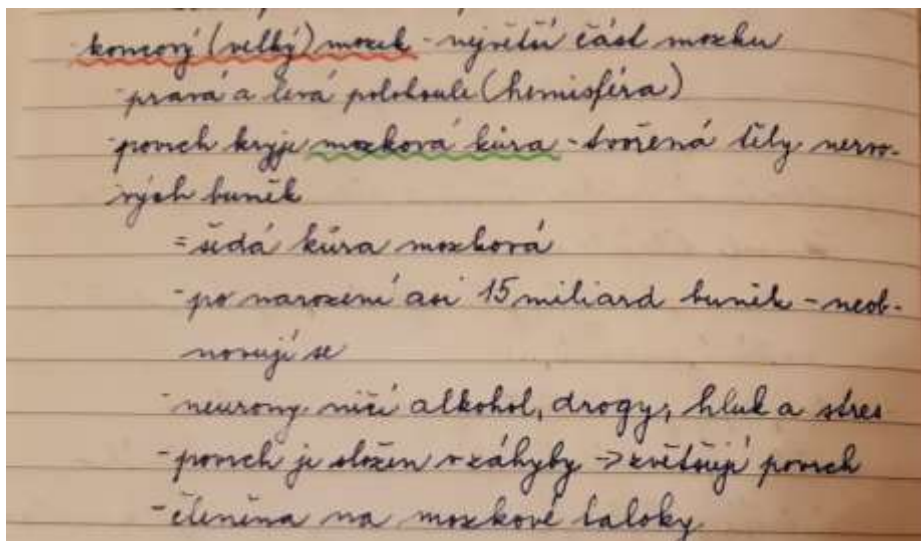 koncový (velký) mozek - největší část mozku
- pravá a levá polokoule (hemisféra)
- povrch kryje mozková kůra - tvořená těly nervo-
vých buněk
= šedá kůra mozková
- po narození asi 15 miliard buněk - neob-
novují se
- neurony ničí alkohol, drogy, hluk a stres
- povrch je složen v záhyby -> zvětšují povrch
- členěna na mozkové laloky